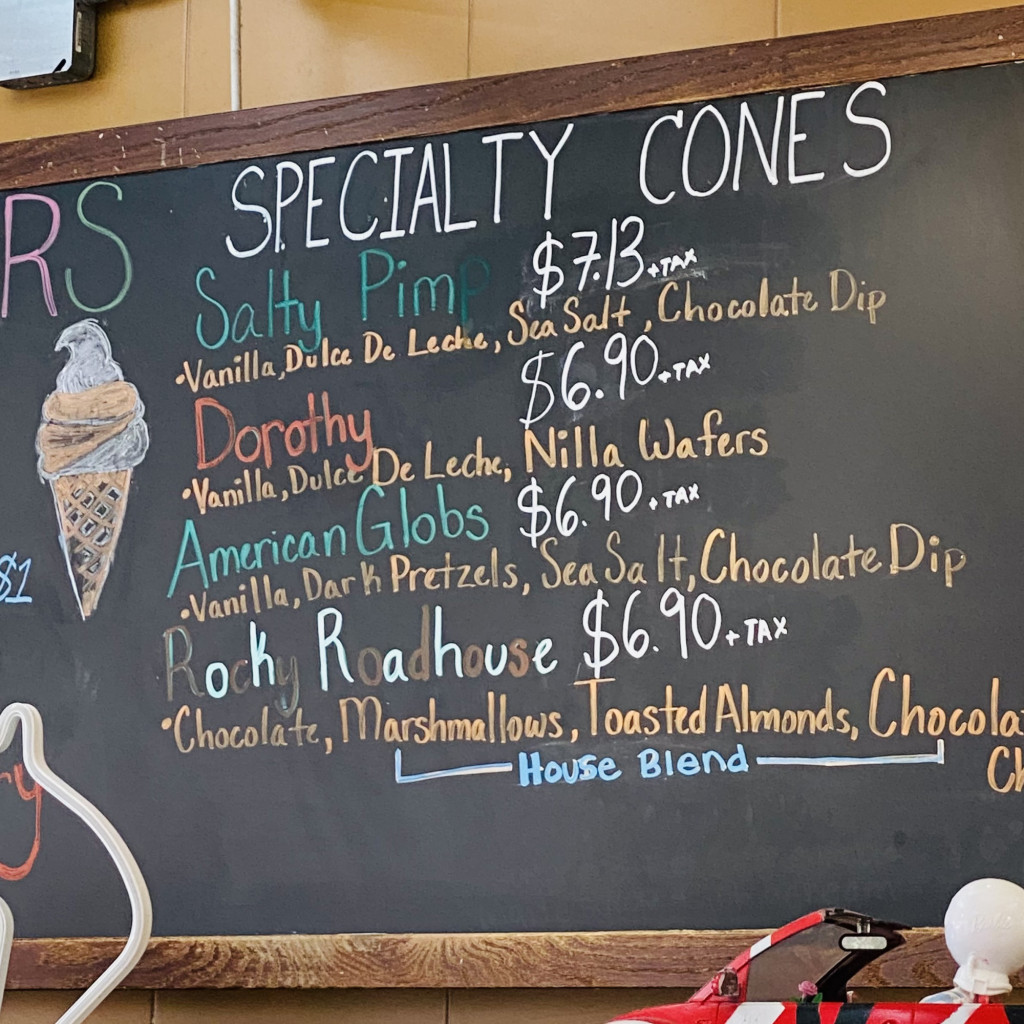 RS
SPECIALTY CONES
Salty Pimp $7.13 + TAX
•Vanilla, Dulce De Leche, Sea Salt, Chocolate Dip
Dorothy $6.90 + TAX
•Vanilla, Dulce De Leche, Nilla Wafers
American Globs $6.90 + TAX
•Vanilla, Dark Pretzels, Sea Salt, Chocolate Dip
$1
Rocky Roadhouse $6.90 + TAX
•Chocolate, Marshmallows, Toasted Almonds, Chocola
Ch
House Blend